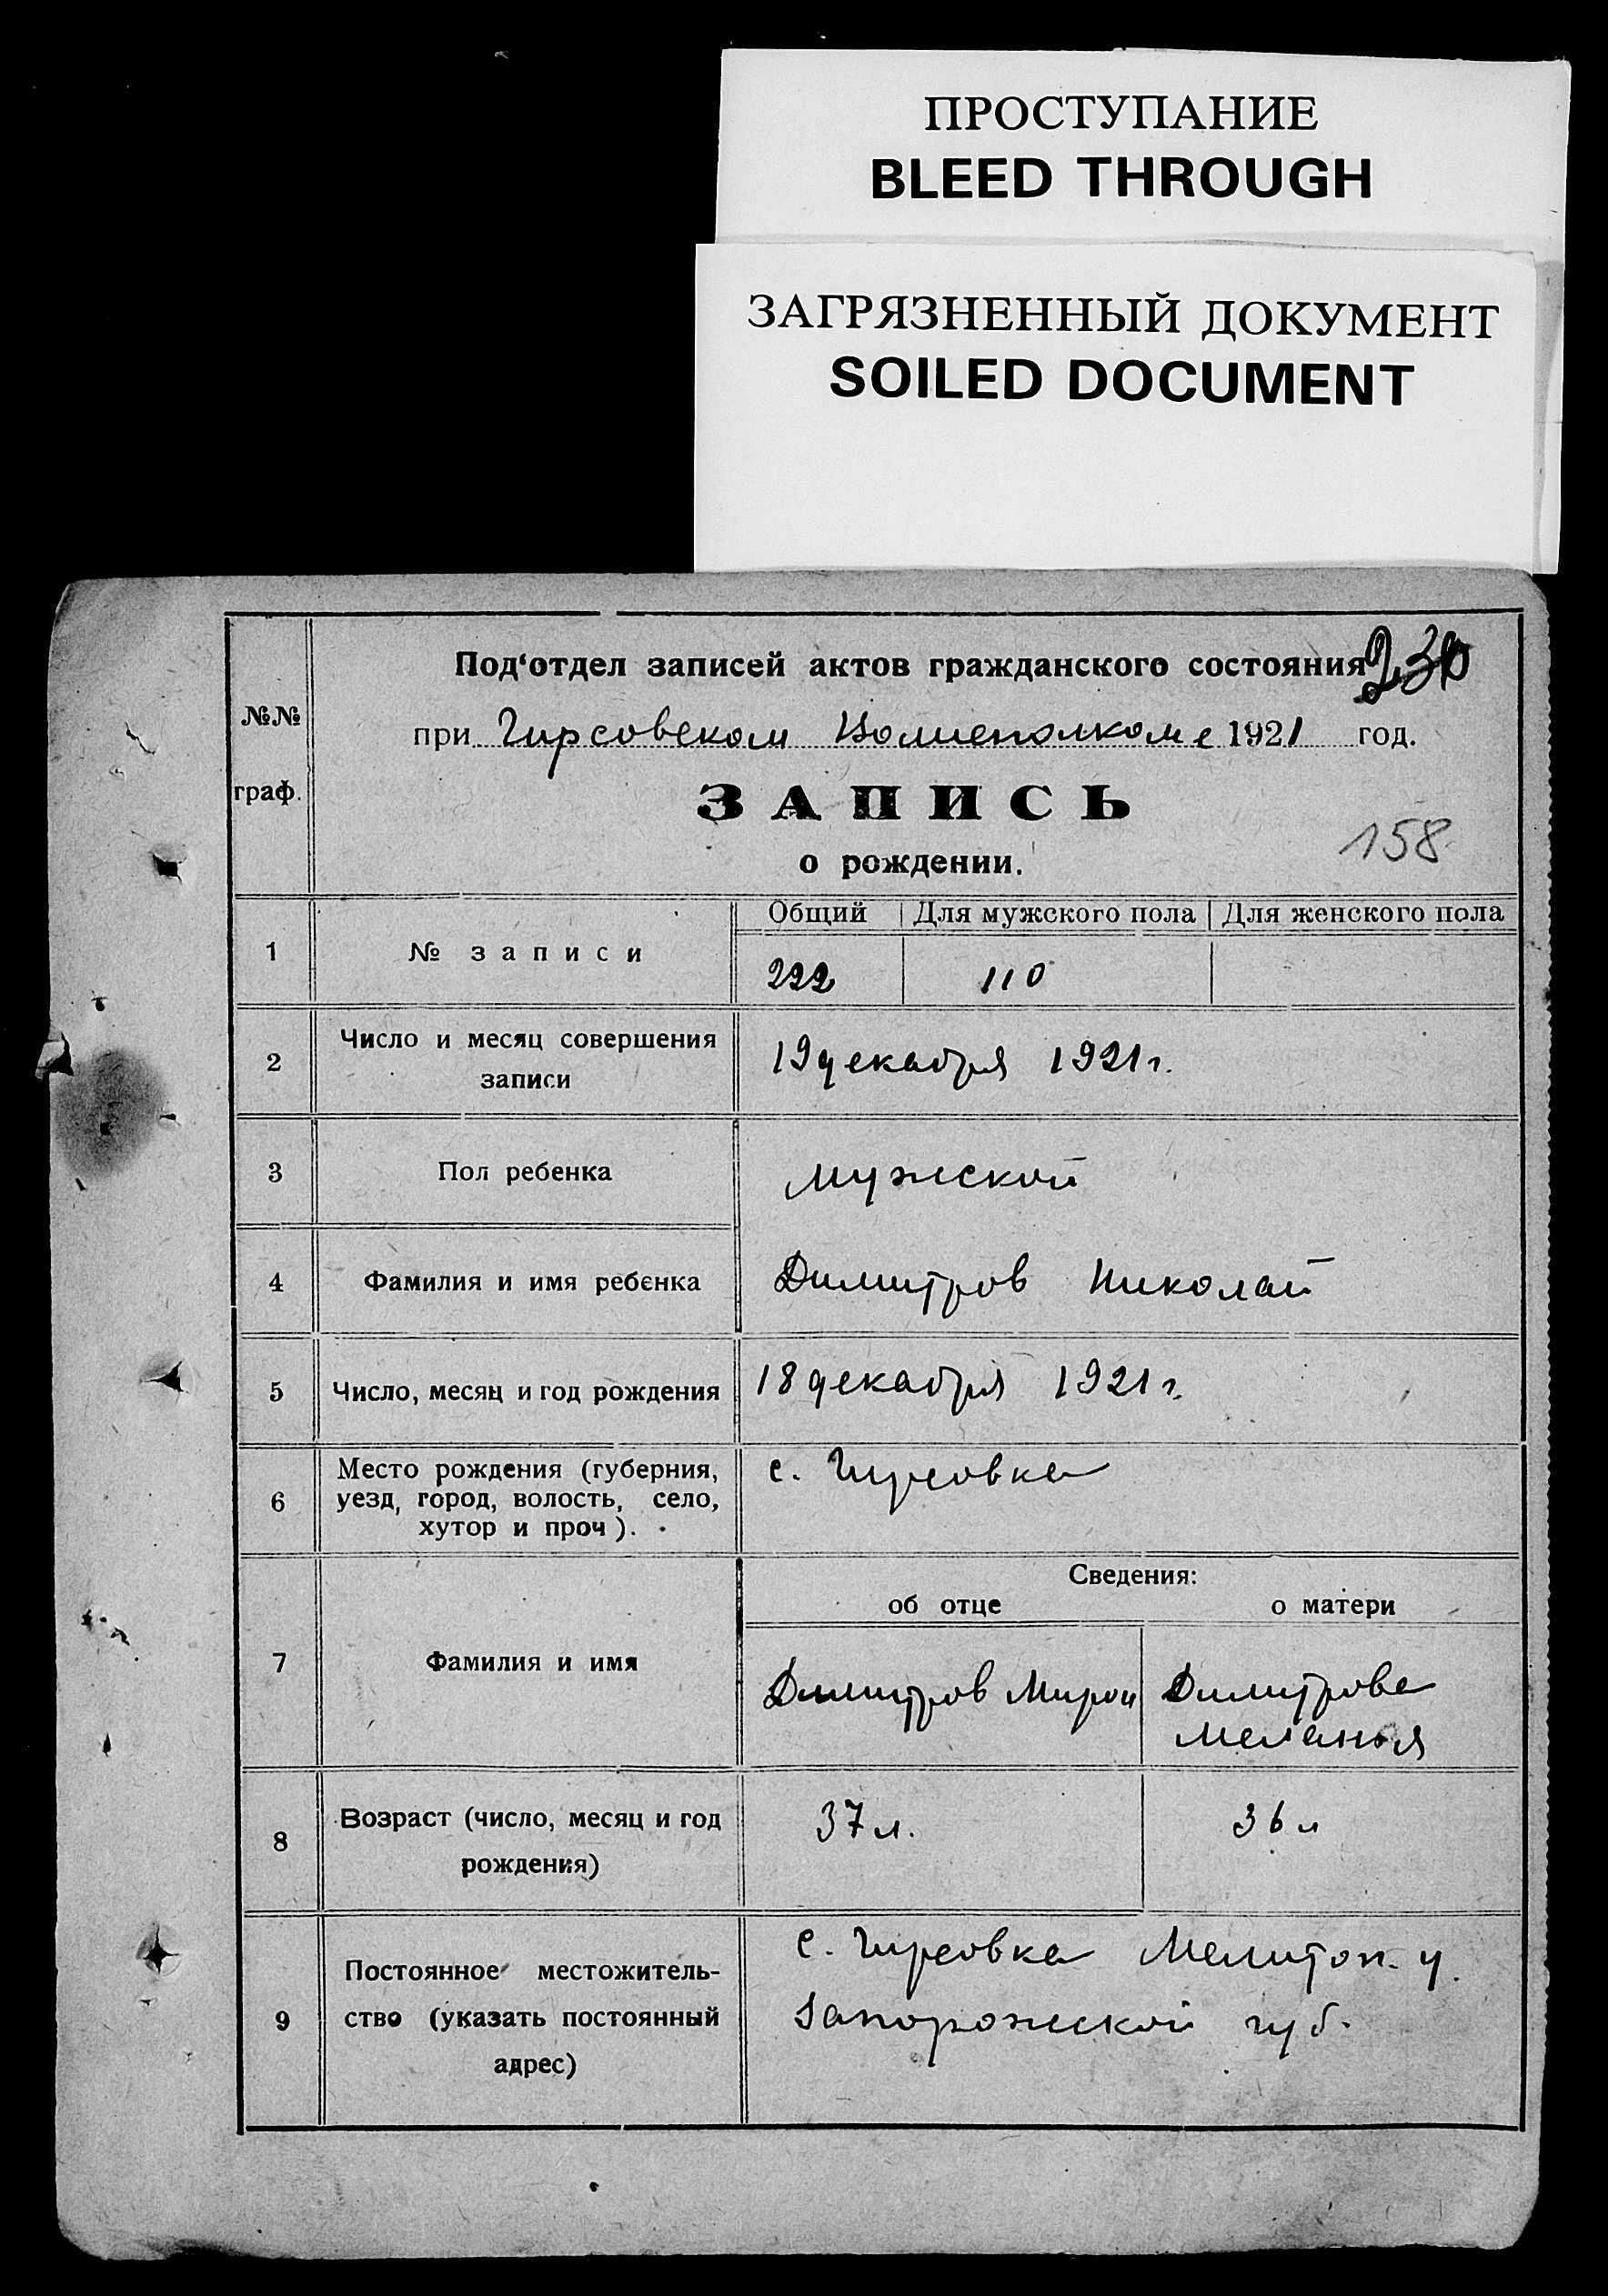 ПРОСТУПАНИЕ
BLEED THROUGH
ЗАГРЯЗНЕННЫЙ ДОКУМЕНТ
SOILED DOCUMENT
№№
граф.
Под‘отдел записей актов гражданского состояния
230
при Гирсовском Волисполкоме 1921 год.
ЗАПИСЬ
о рождении.
158
1 № записи Общий Для мужского пола Для женского пола
222 110
2 Число и месяц совершения
записи
19 декабря 1921 г.
3 Пол ребенка мужской
4 Фамилия и имя ребенка Димитров Николай
5 Число, месяц и год рождения 18 декабря 1921 г.
6 Место рождения (губерния,
уезд, город, волость, село,
хутор и проч).
с. Гирсовка
Сведения:
об отце о матери
7 Фамилия и имя Димитров Мирон Димитрова
Меланья
8 Возраст (число, месяц и год
рождения)
37 л. 36 л
9 Постоянное местожитель-
ство (указать постоянный
адрес)
с. Гирсовка Мелитоп. у.
Запорожской губ.